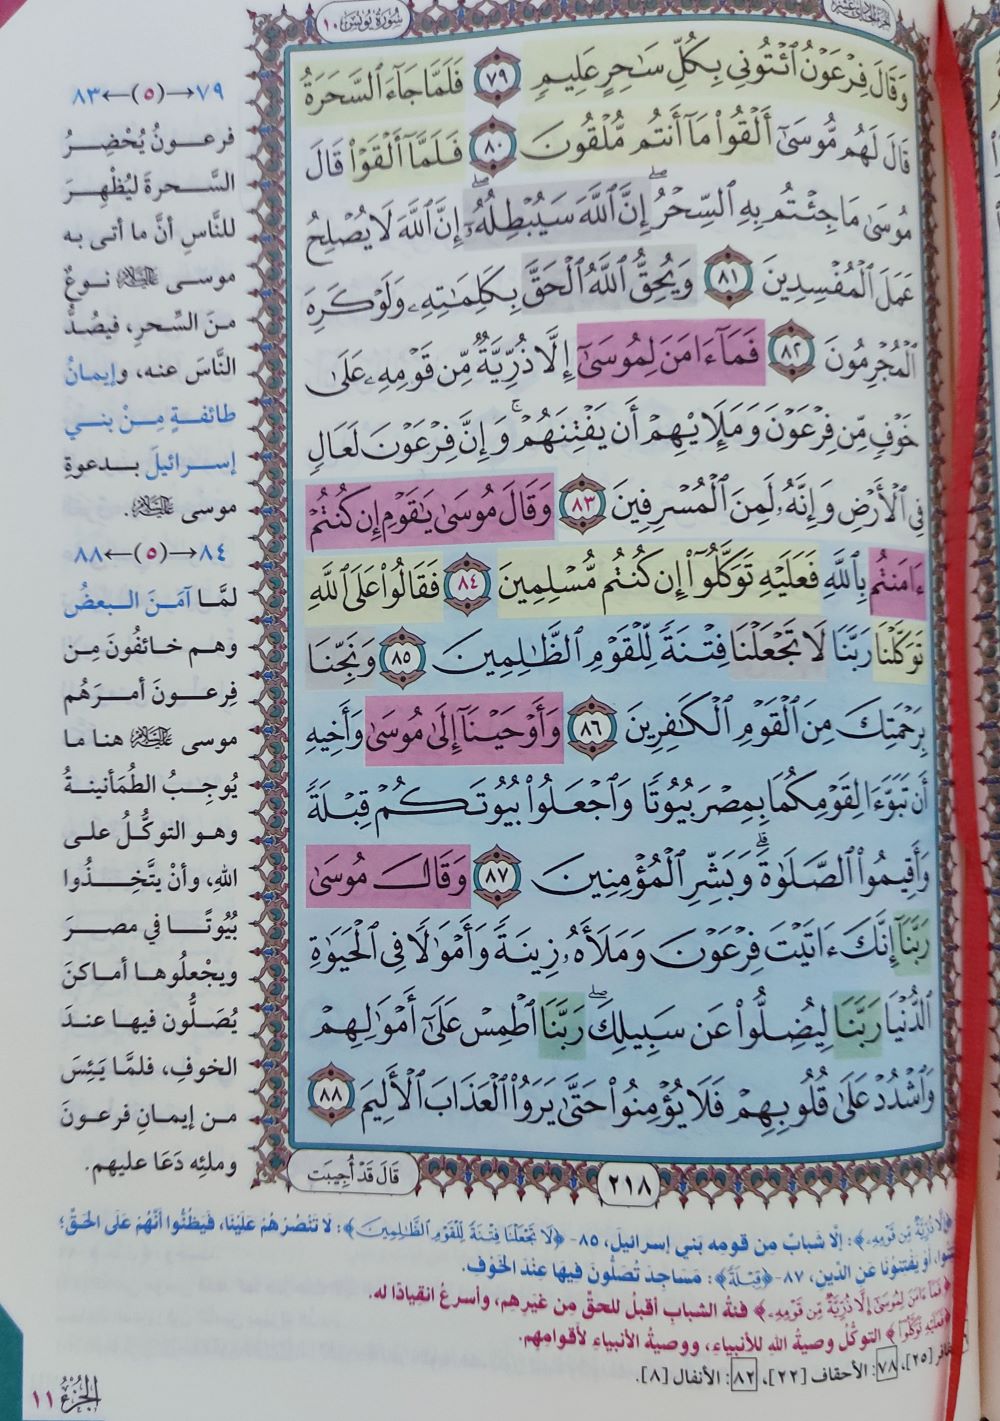 سُورَةُ يُونُسَ ١٠
وَقَالَ فِرْعَوْنُ ٱئْتُونِي بِكُلِّ سَٰحِرٍ عَلِيمٍ ٧٩ فَلَمَّا جَآءَ ٱلسَّحَرَةُ
قَالَ لَهُم مُّوسَىٰٓ أَلْقُوا۟ مَآ أَنتُم مُّلْقُونَ ٨٠ فَلَمَّآ أَلْقَوْا۟ قَالَ
مُوسَىٰ مَا جِئْتُم بِهِ ٱلسِّحْرُ ۖ إِنَّ ٱللَّهَ سَيُبْطِلُهُۥٓ ۖ إِنَّ ٱللَّهَ لَا يُصْلِحُ
عَمَلَ ٱلْمُفْسِدِينَ ٨١ وَيُحِقُّ ٱللَّهُ ٱلْحَقَّ بِكَلِمَٰتِهِۦ وَلَوْ كَرِهَ
ٱلْمُجْرِمُونَ ٨٢ فَمَآ ءَامَنَ لِمُوسَىٰٓ إِلَّا ذُرِّيَّةٌ مِّن قَوْمِهِۦ عَلَىٰ
خَوْفٍ مِّن فِرْعَوْنَ وَمَلَإِي۟هِمْ أَن يَفْتِنَهُمْ ۚ وَإِنَّ فِرْعَوْنَ لَعَالٍ
فِي ٱلْأَرْضِ وَإِنَّهُۥ لَمِنَ ٱلْمُسْرِفِينَ ٨٣ وَقَالَ مُوسَىٰ يَٰقَوْمِ إِن كُنتُمْ
ءَامَنتُم بِٱللَّهِ فَعَلَيْهِ تَوَكَّلُوٓا۟ إِن كُنتُم مُّسْلِمِينَ ٨٤ فَقَالُوا۟ عَلَى ٱللَّهِ
تَوَكَّلْنَا رَبَّنَا لَا تَجْعَلْنَا فِتْنَةً لِّلْقَوْمِ ٱلظَّٰلِمِينَ ٨٥ وَنَجِّنَا
بِرَحْمَتِكَ مِنَ ٱلْقَوْمِ ٱلْكَٰفِرِينَ ٨٦ وَأَوْحَيْنَآ إِلَىٰ مُوسَىٰ وَأَخِيهِ
أَن تَبَوَّءَا لِقَوْمِكُمَا بِمِصْرَ بُيُوتًا وَٱجْعَلُوا۟ بُيُوتَكُمْ قِبْلَةً
وَأَقِيمُوا۟ ٱلصَّلَوٰةَ ۗ وَبَشِّرِ ٱلْمُؤْمِنِينَ ٨٧ وَقَالَ مُوسَىٰ
رَبَّنَآ إِنَّكَ ءَاتَيْتَ فِرْعَوْنَ وَمَلَأَهُۥ زِينَةً وَأَمْوَٰلًا فِي ٱلْحَيَوٰةِ
ٱلدُّنْيَا رَبَّنَا لِيُضِلُّوا۟ عَن سَبِيلِكَ ۖ رَبَّنَا ٱطْمِسْ عَلَىٰٓ أَمْوَٰلِهِمْ
وَٱشْدُدْ عَلَىٰ قُلُوبِهِمْ فَلَا يُؤْمِنُوا۟ حَتَّىٰ يَرَوُا۟ ٱلْعَذَابَ ٱلْأَلِيمَ ٨٨
٢١٨
قَالَ قَدْ أُجِيبَت
٧٩→(٥)←٨٣
فرعونُ يُحْضِرُ
السَّحرةَ ليُظْهِرَ
للنَّاسِ أنَّ ما أتى به
موسى عليه السلام نوعٌ
منَ السِّحرِ، فيصُدُّ
النَّاسَ عنه، وإيمانُ
طائفةٍ مِنْ بني
إسرائيلَ بدعوةِ
موسى عليه السلام.
٨٤→(٥)←٨٨
لمَّا آمَنَ البعضُ
وهم خائفُونَ مِن
فِرعونَ أمرَهُم
موسى عليه السلام هنا ما
يُوجِبُ الطُمَأنينةُ
وهو التوكُّلُ على
اللهِ، وأنْ يتَّخِذُوا
بيُوتًا في مصرَ
ويجْعلُوها أماكنَ
يُصَلُّون فيها عندَ
الخوفِ، فلمَّا يَئِسَ
من إيمانِ فرعونَ
وملئِه دَعَا عليهم.
﴿إِلَّا ذُرِّيَّةٌ مِّن قَوْمِهِۦ﴾: إلَّا شبابٌ مِن قومِه بَني إسرائيلَ، ٨٥- ﴿لَا تَجْعَلْنَا فِتْنَةً لِّلْقَوْمِ ٱلظَّٰلِمِينَ﴾: لَا تَنْصُرْهُمْ عَلَيْنَا، فَيَظُنُّوا أنَّهُمْ عَلَى الحَقِّ؛
أوْ يفتِنُونَا عَنِ الدِّينِ، ٨٧- ﴿قِبْلَةً﴾: مَسَاجِدَ تُصَلُّونَ فِيهَا عِنْدَ الخَوْفِ.
﴿فَمَآ ءَامَنَ لِمُوسَىٰٓ إِلَّا ذُرِّيَّةٌ مِّن قَوْمِهِۦ﴾ فئةُ الشبابِ أقبلُ للحقِّ مِن غيرِهِم، وأسرعُ انقيادًا له.
﴿فَعَلَيْهِ تَوَكَّلُوٓا۟﴾ التوكُّلُ وصيةُ اللهِ للأنبياءِ، ووصيةُ الأنبياءِ لأقوامِهِم.
[٢٥]، ٧٨: الأحقاف [٢٢]، ٨٢: الأنفال [٨].
الجُزْءُ ١١